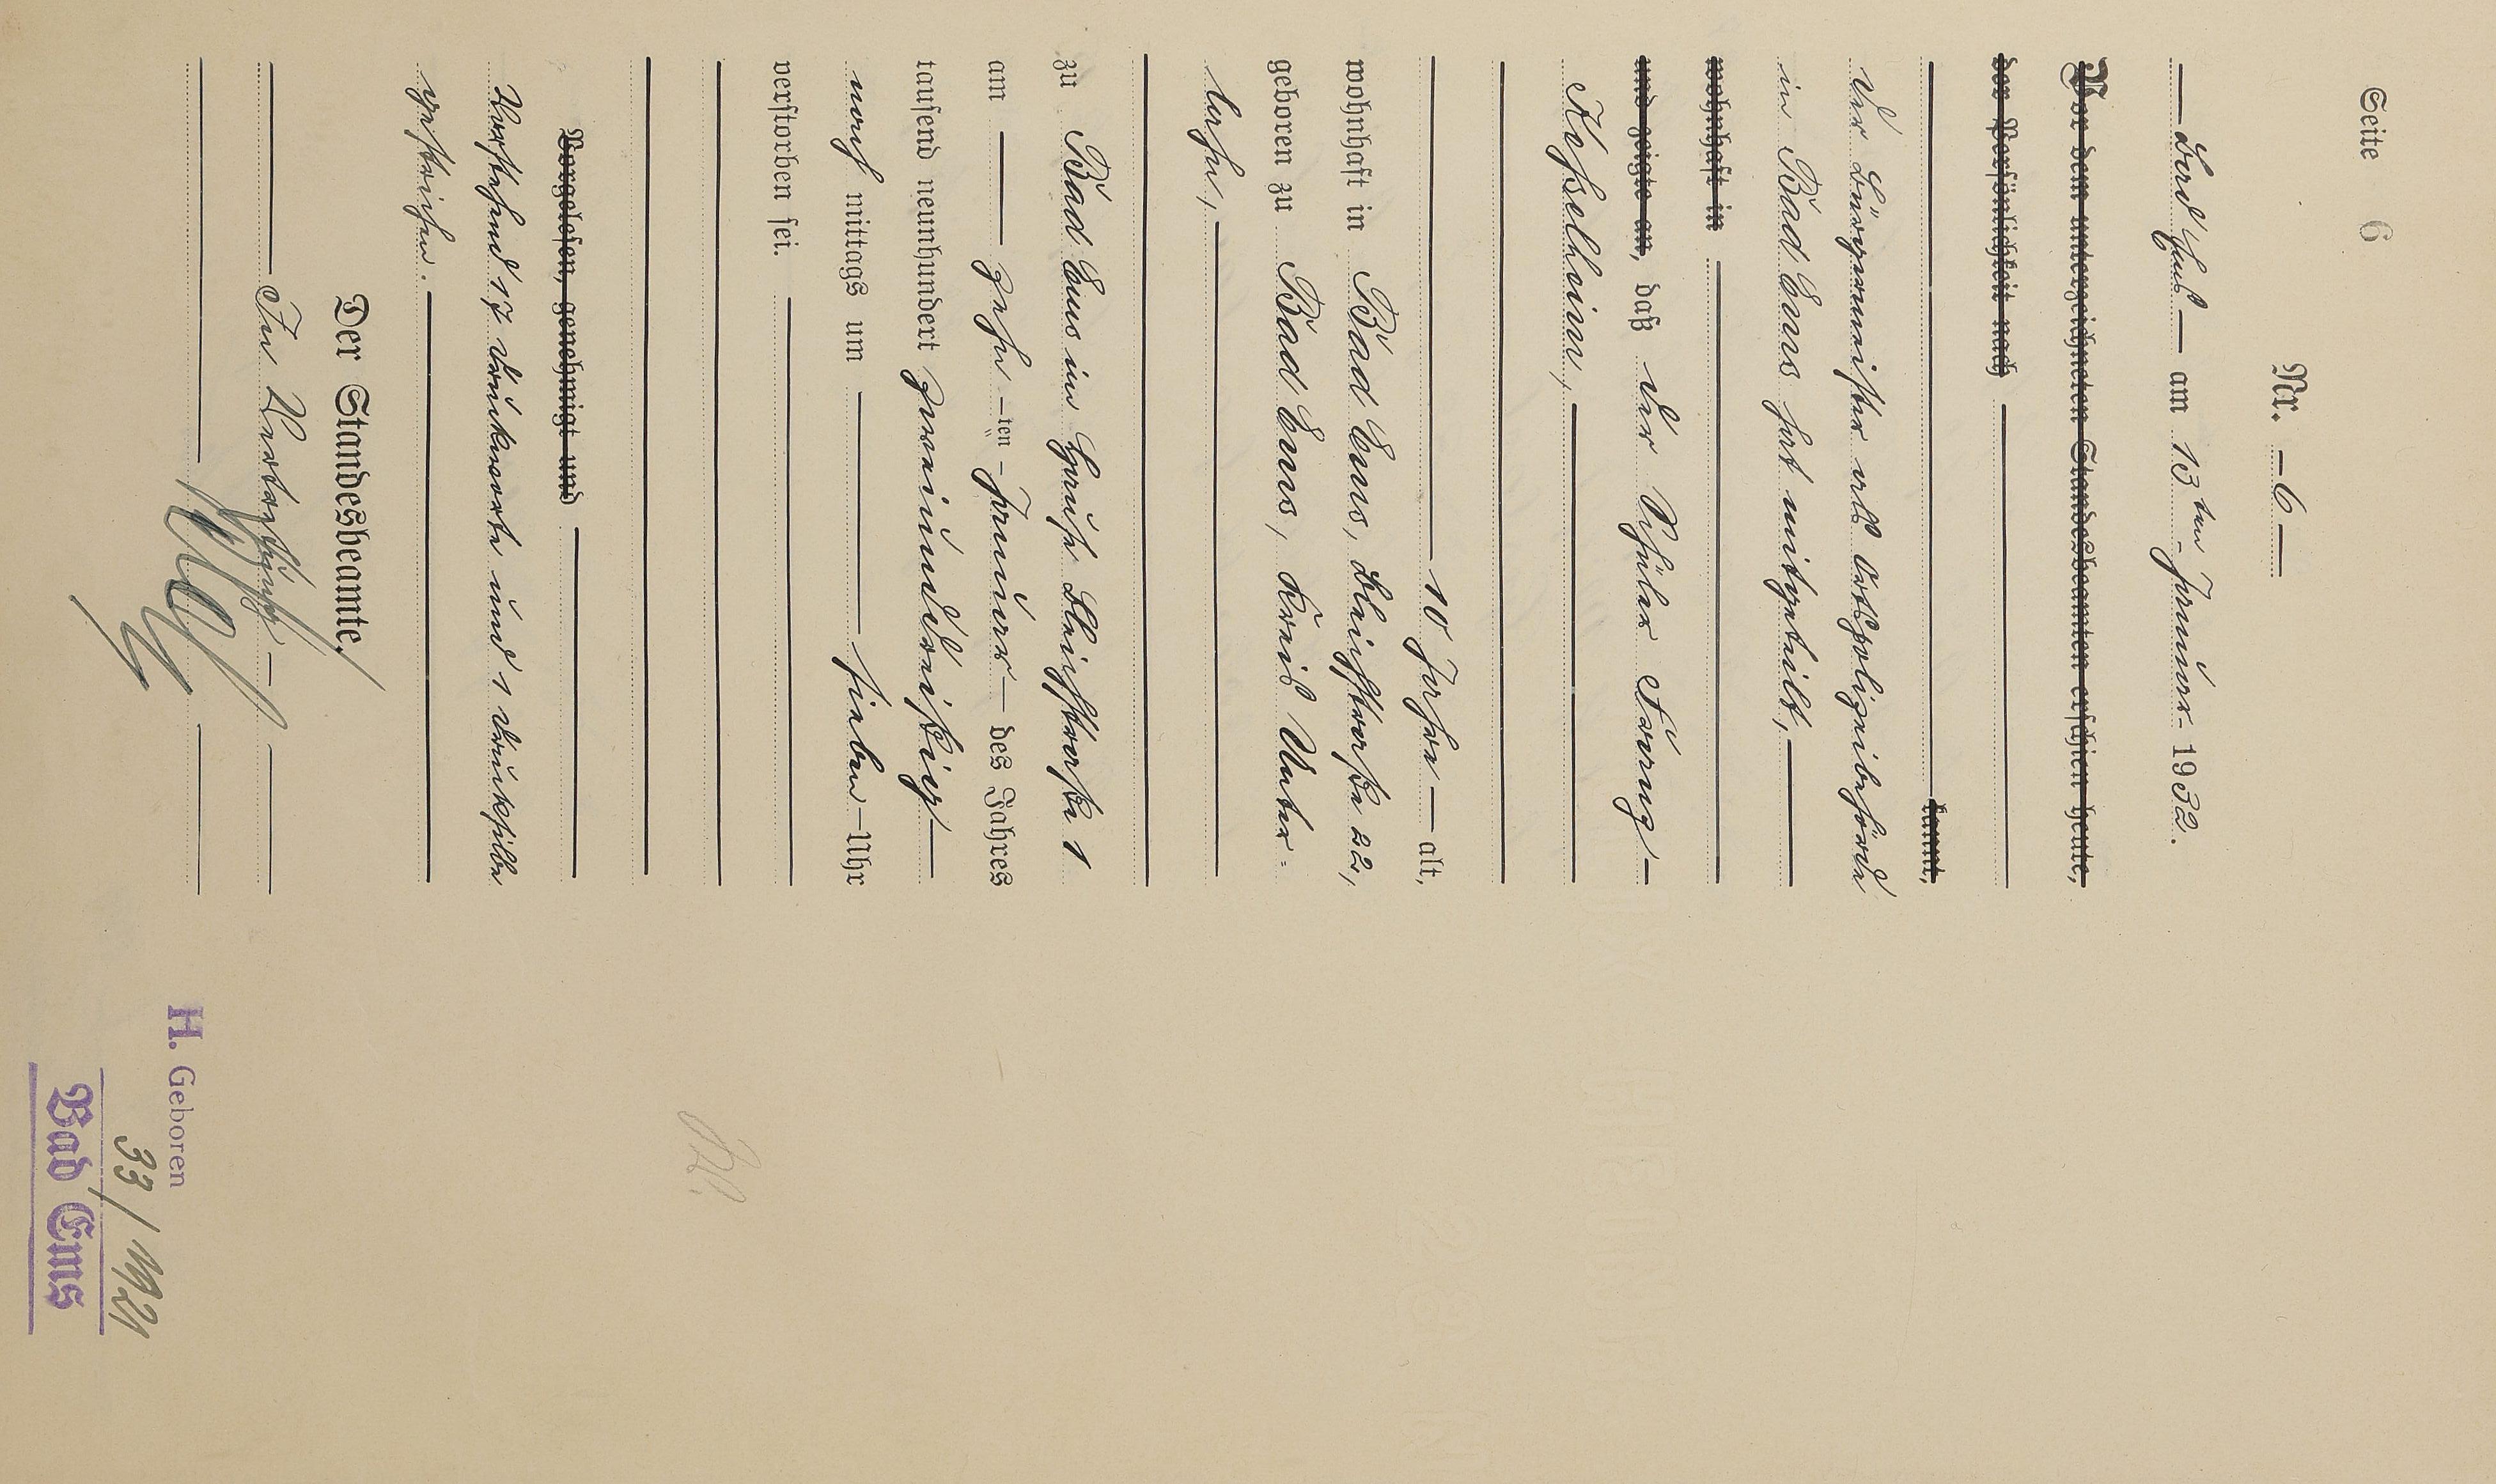 Seite 6
Nr. – 6 –
— Bad Ems — am 13ten Januar 1932.
Vor dem unterzeichneten Standesbeamten erschien heute,
der Persönlichkeit nach
kannt,
Der Bürgermeister als Ortspolizeibehörde
in Bad Ems hat mitgeteilt,
wohnhaft in
und zeigte an, daß der Schüler
Kesselheim,
10 Jahre — alt,
wohnhaft in Bad Ems, Bleichstraße 22,
geboren zu Bad Ems, Kreis Unter-
lahn,
zu Bad Ems im Hause Bleichstraße 1
am — zehn – ten – Januar — des Jahres
tausend neunhundert zweiunddreißig —
nach mittags um — sieben – Uhr
verstorben sei.
Vorgelesen, genehmigt und
Vorstehend 17 Druckworte und 1 Drucksilbe
gestrichen.
Der Standesbeamte.
In Vertretung —
H. Geboren
33/1921
Bad Ems